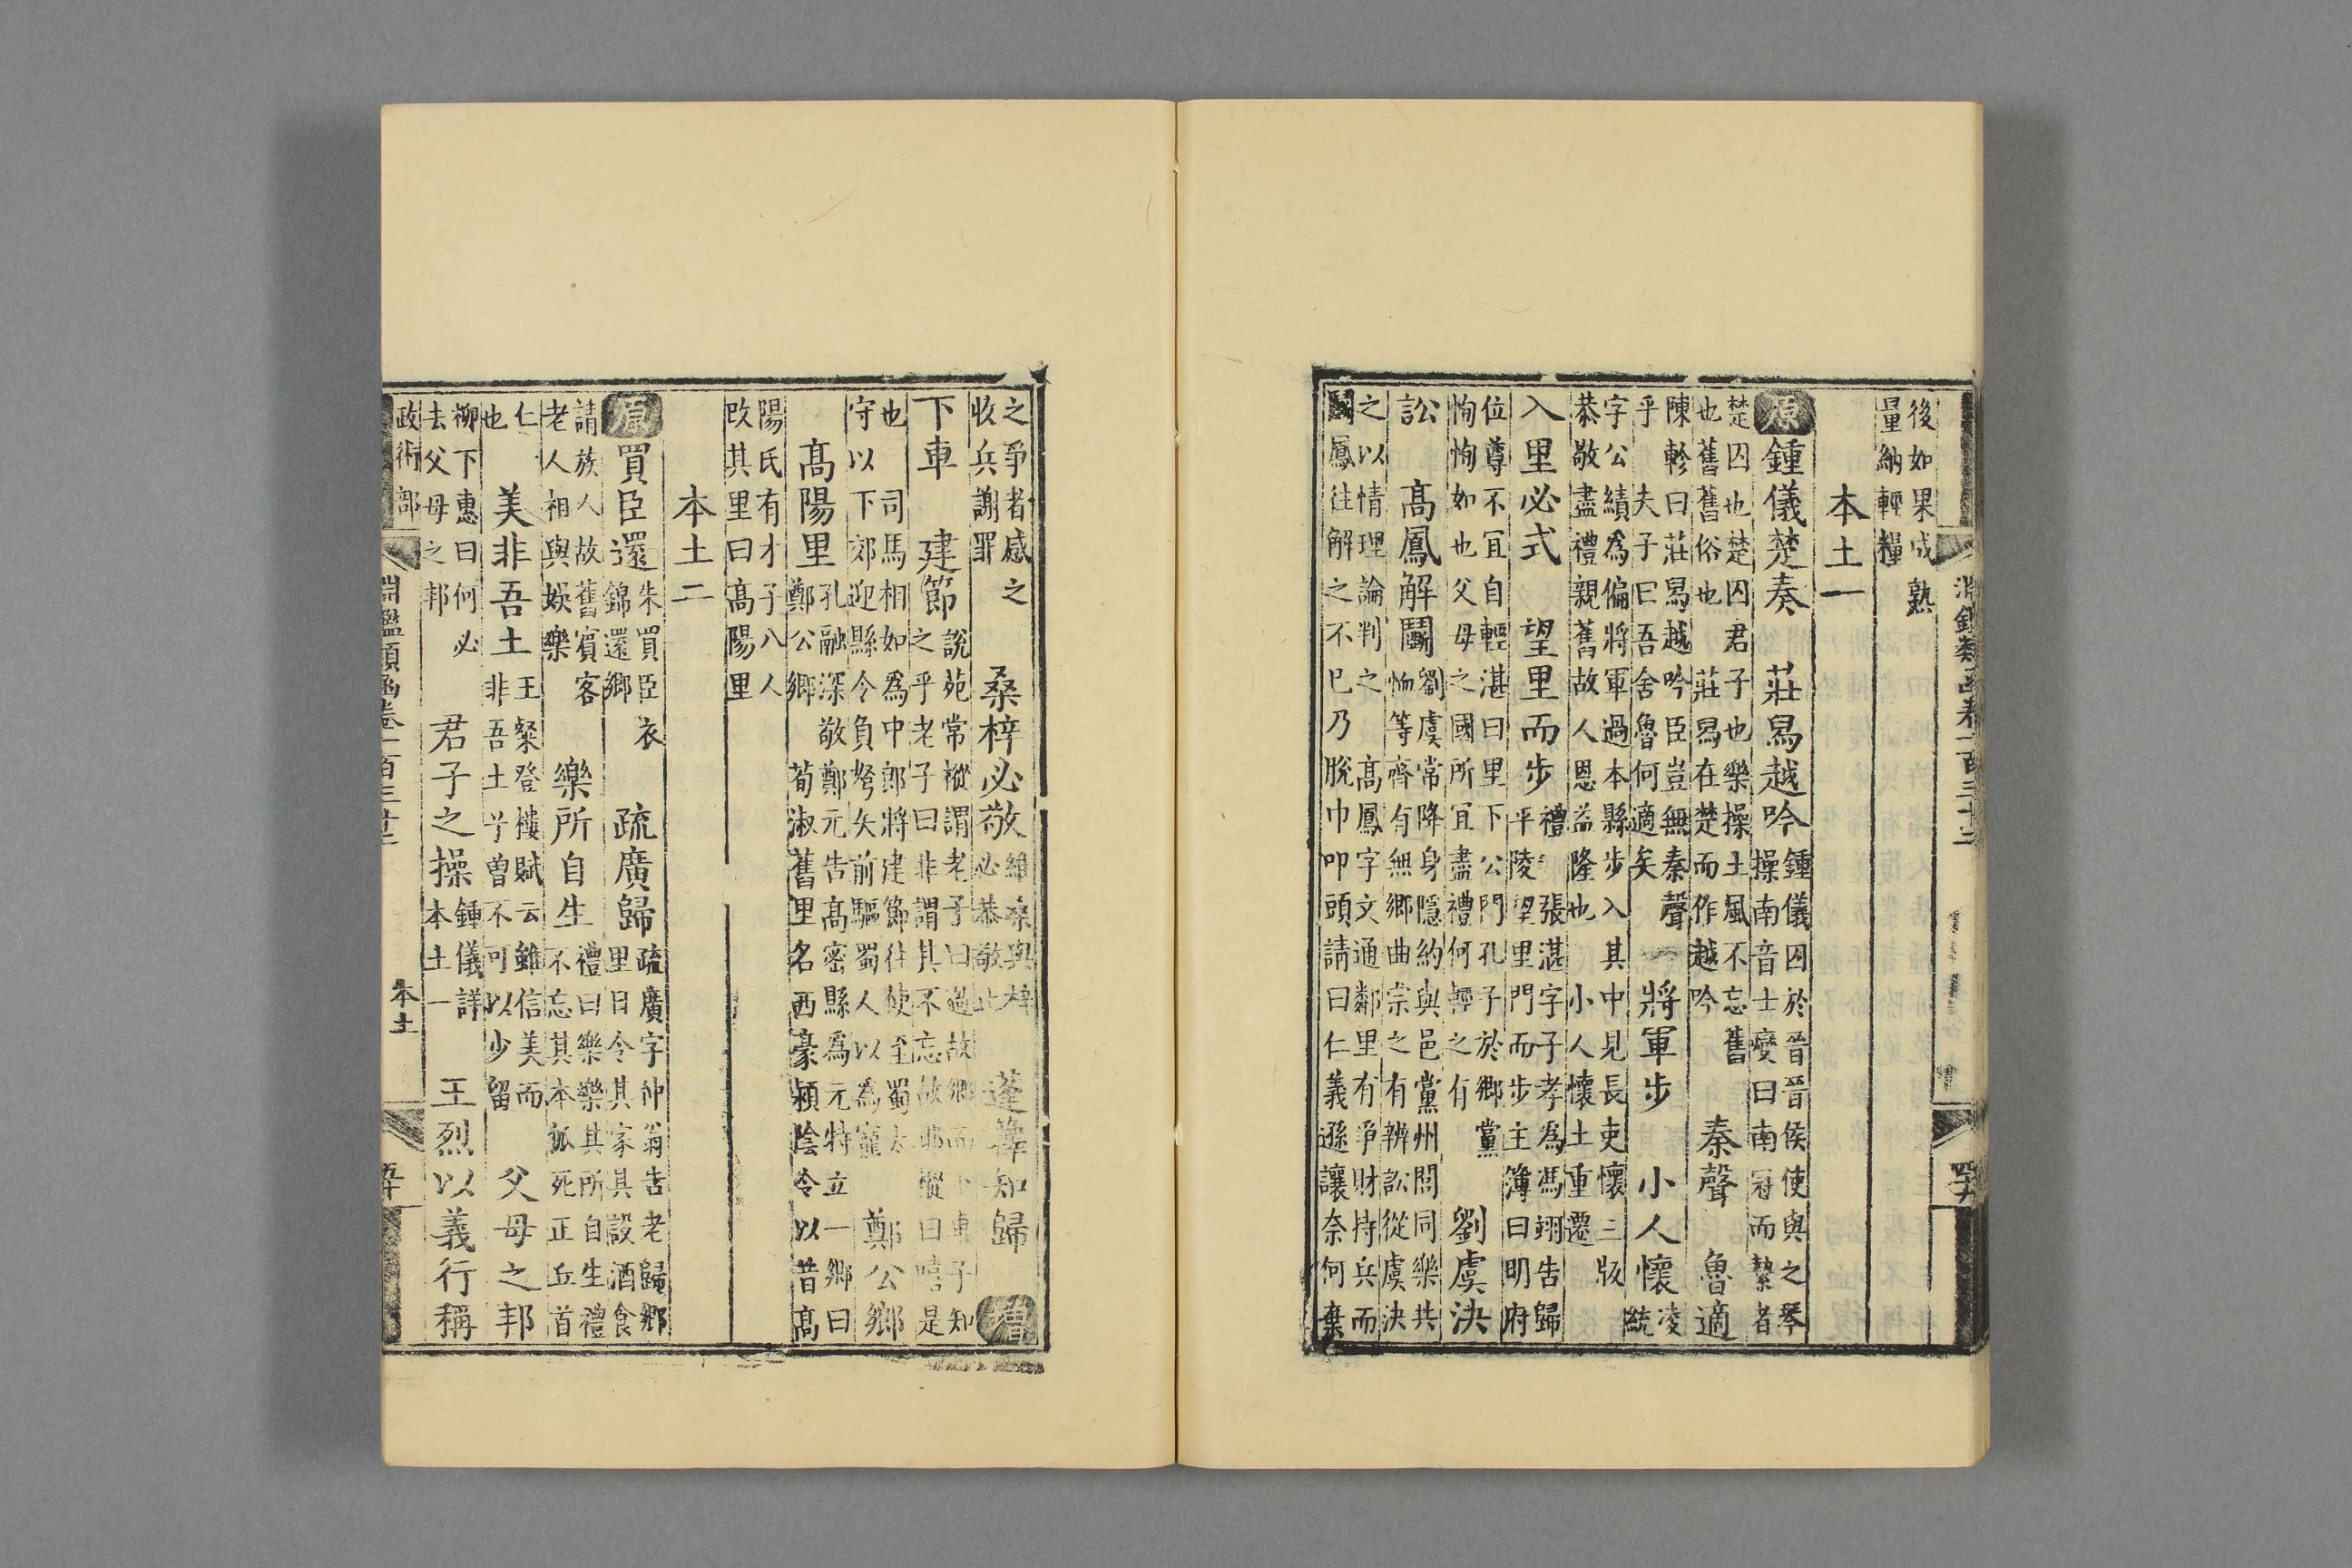 後如果成熟
量納輕糧
本土一
原 鍾儀楚奏 莊舄越吟 鍾儀囚於晉晉侯使與之琴
操南音士燮曰南冠而縶者
楚囚也楚囚君子也樂操土風不忘舊
也舊舊俗也 莊舄在楚而作越吟 秦聲 魯適
陳軫曰莊舄越吟臣豈無秦聲
乎 夫子曰吾舍魯何適矣 將軍步 小人懷 凌統
字公績為偏將軍過本縣步入其中見長吏懷三版
恭敬盡禮親舊故人恩益隆也 小人懷土重遷
入里必式 望里而步 禮 張湛字子孝為馮翊告歸
平陵望里門而步主簿曰明府
位尊不宜自輕湛曰里下公門孔子於鄉黨
恂恂如也父母之國所宜盡禮何輕之有 劉虞決
訟 高鳳解鬬 劉虞常降身隱約與邑黨州閭同樂共
恤等齊有無鄉曲宗之有辨訟從虞決
之以情理論判之 高鳳字文通鄰里有爭財持兵而
鬬鳳往解之不已乃脫巾叩頭請曰仁義遜讓奈何棄
之爭者感之
收兵謝罪 桑梓必敬 維桑與梓
必恭敬止 蓬蓽知歸 增
下車 建節 說苑常樅謂老子曰過故鄉而下車子知
之乎老子曰非謂其不忘故耶樅曰嘻是
也 司馬相如為中郎將建節往使至蜀太
守以下郊迎縣令負弩矢前驅蜀人以為寵 鄭公鄉
高陽里 孔融深敬鄭元告高密縣為元特立一鄉曰
鄭公鄉 荀淑舊里名西豪潁陰令以昔高
陽氏有才子八人
改其里曰高陽里
本土二
原 買臣還 朱買臣衣
錦還鄉 疏廣歸 疏廣字仲翁告老歸鄉
里日令其家其設酒食
請族人故舊賓客
老人相與娛樂 樂所自生 禮曰樂樂其所自生禮
不忘其本狐死正丘首
仁
也 美非吾土 王粲登樓賦云雖信美而
非吾土兮曾不可以少留 父母之邦
柳下惠曰何必
去父母之邦 君子之操 鍾儀詳
本土一 王烈以義行稱
政術部
淵鑑類函卷一百三十二
本土